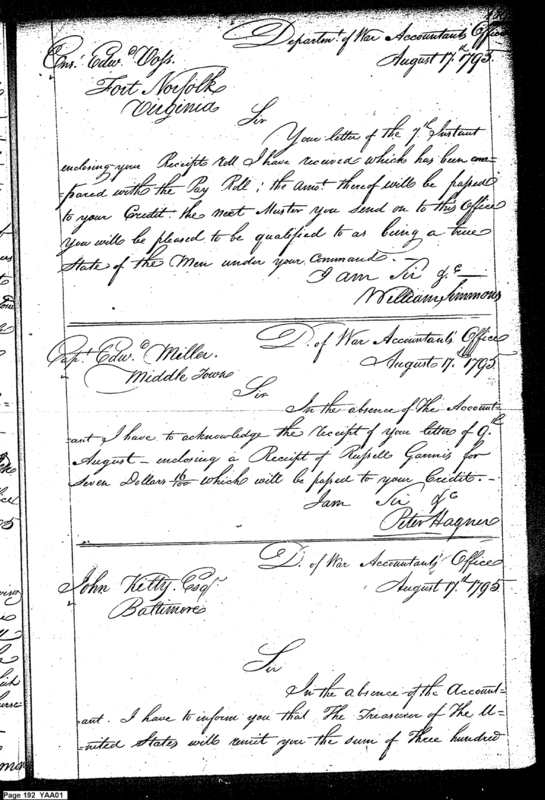 Department of War Accountants Office
August 17th 1795
Ens.n Edwd Voss
Fort Norfolk
Virginia
Sir
Your letter of the 7th Instant
enclosing your Receipts roll I have received which has been com=
=pared with the Pay Roll; the amot thereof will be passed
to your Credit the next Muster you send on to this Office
you will be pleased to be qualified to as being a true
State of the Men under your Command.
I am Sir &c
William Simmons
D. of War Accountants Office
August 17th 1795
Capt Edwd Miller.
Middle Town
Sir
In the absence of The Account=
=ant I have to acknowledge the receipt of your letter of 9th
August – enclosing a Receipt of Russell Gannis for
Seven Dollars which will be passed to your Credit. –
I am Sir &c
Peter Hagner
D. of War Accountants Office
August 17th 1795
John Kelty Esqr
Baltimore
Sir
In the absence of the Account=
ant. I have to inform you that The Treasurer of The U=
=nited States will remit you the sum of Three hundred
Page 192 YAA01